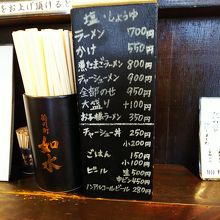 塩・しょうゆ
ラーメン 700円
かけ 550円
煮たまごラーメン 800円
チャーシューメン 900円
全部のせ 950円
大盛り +100円
お子様ラーメン 350円
チャーシュー丼 250円
小200円
ごはん 150円
小100円
ビール 生500円
中ビン450円
ノンアルコールビール 280円
如水